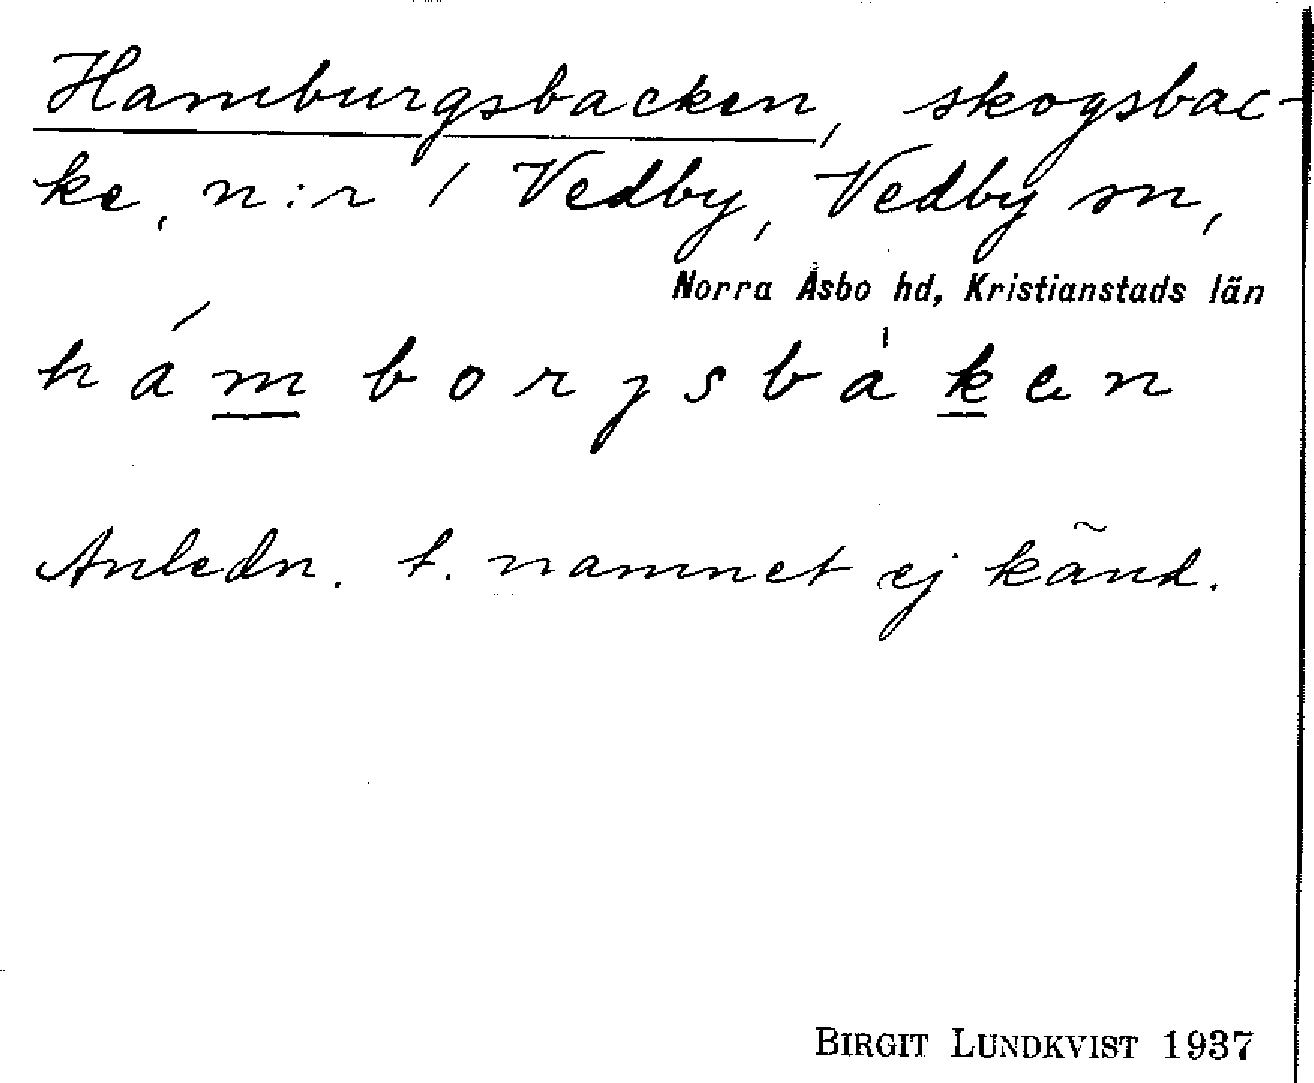 Hamburgsbacken, skogsbac-
ke, n:r 1 Vedby, Vedby sn,
Norra Åsbo hd, Kristianstads län
hámborgsbàken
Anledn. t. namnet ej känd.
BIRGIT LUNDKVIST 1937